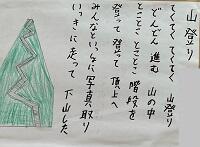 山登り
てくてく てくてく 山登り
でんでん 進む 山の中
とことこ とことこ 階段を
登って 登って 頂上へ
みんなといっしょに 写真取り
いっきに走って 下山した